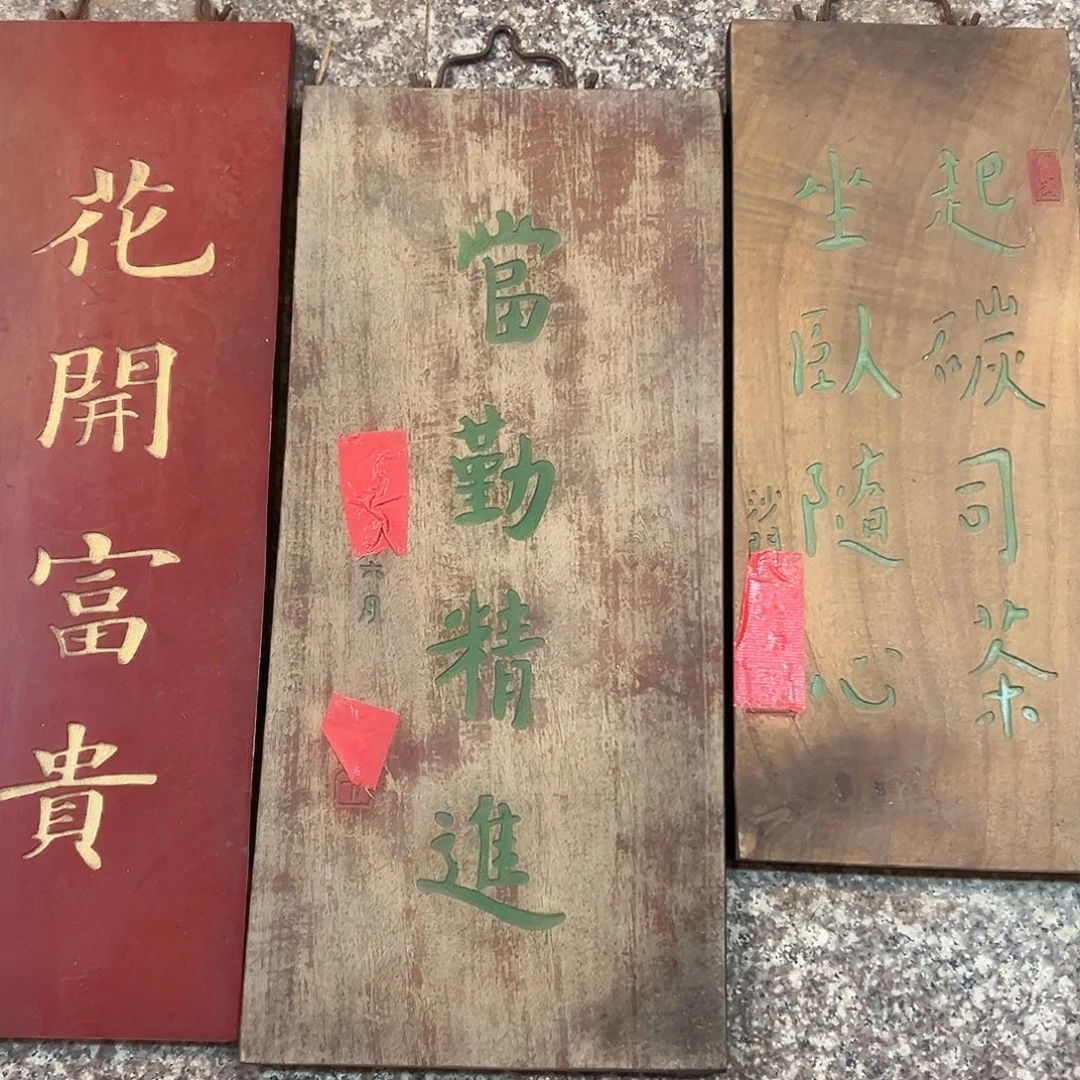 花開富貴
當勤精進
六月
起碳司茶
坐臥隨心
沙門